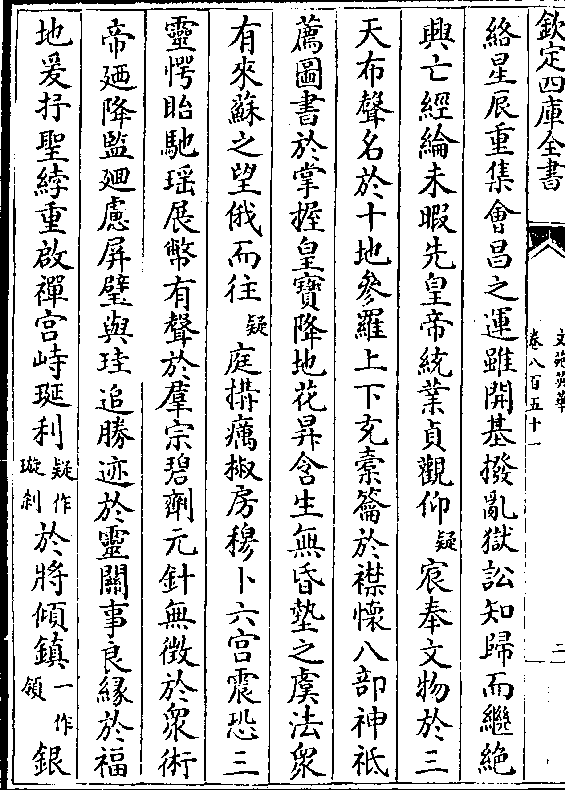 欽定四庫全書
文苑英華
卷八百五十一
二
絡星辰重集會昌之運雖開基撥亂獄訟知歸而繼絶
興亡經綸未暇先皇帝統業貞觀仰疑宸奉文物於三
天布聲名於十地參羅上下充橐籥於襟懷八部神祗
薦圖書於掌握皇寶降地花昇含生無昏墊之虞法衆
有來蘇之望俄而往疑庭搆癘椒房穆卜六宫震恐三
靈愕眙馳瑶展幣有聲於羣宗碧劑元針無徴於衆術
帝廼降監廻慮屏璧與珪追勝迹於靈關事良縁於福
地爰抒聖綍重啟禪宫峙珽利疑作璇刹於將傾鎮一作領銀